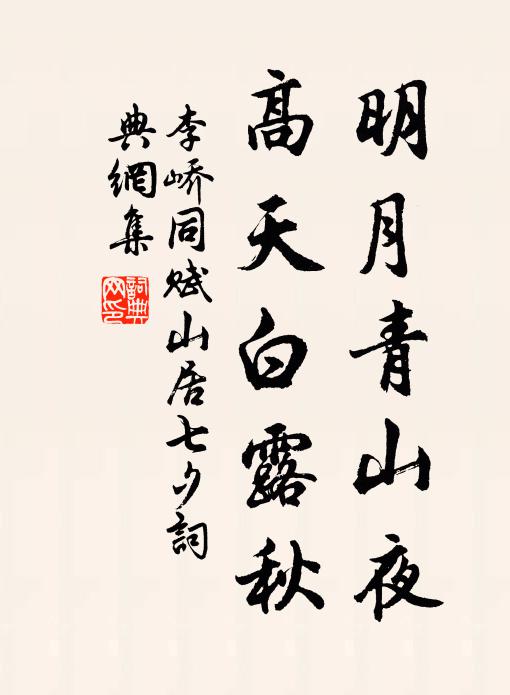 明月青山夜
高天白露秋
李嶠同賦山居七夕詞
典網集
詞典網印